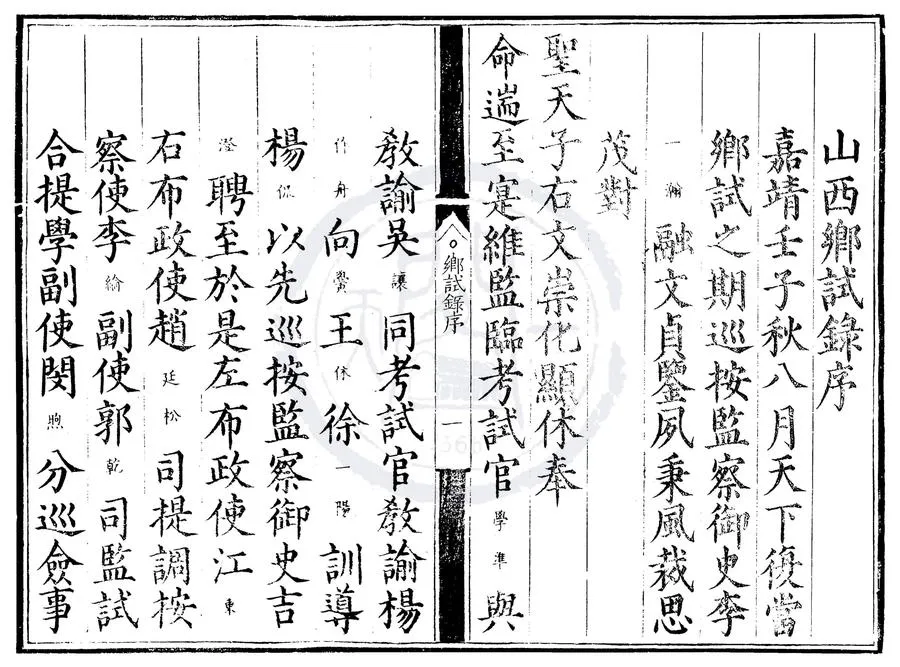 山西鄉試錄序
嘉靖壬子秋八月天下復當
鄉試之期巡按監察御史李
一瀚融文貞鑒夙秉風裁思
茂對
聖天子右文崇化顯休奉
命遄至寔維監臨考試官學準與
鄉試錄序
一
教諭吳讓同考試官教諭楊
竹舟向鸑王休徐一陽訓導
楊侃以先巡按監察御史吉
澄聘至於是左布政使江東
右布政使趙廷松司提調按
察使李綸副使郭乾司監試
合提學副使閔煦分巡僉事